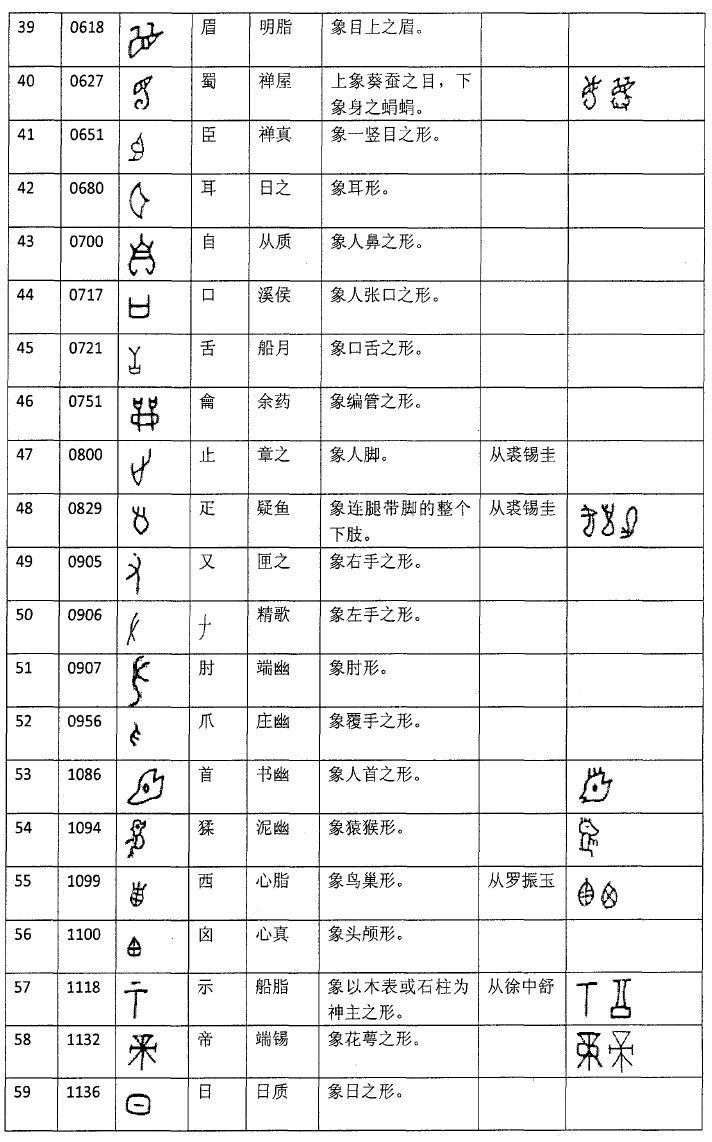 39 0618 眉 明脂 象目上之眉。
40 0627 蜀 禅屋 上象葵蚕之目，下
象身之蜎蜎。
41 0651 臣 禅真 象一竖目之形。
42 0680 耳 日之 象耳形。
43 0700 自 从质 象人鼻之形。
44 0717 口 溪侯 象人张口之形。
45 0721 舌 船月 象口舌之形。
46 0751 龠 余药 象编管之形。
47 0800 止 章之 象人脚。 从裘锡圭
48 0829 疋 疑鱼 象连腿带脚的整个 从裘锡圭
下肢。
49 0905 又 匣之 象右手之形。
50 0906 𠂇 精歌 象左手之形。
51 0907 肘 端幽 象肘形。
52 0956 爪 庄幽 象覆手之形。
53 1086 首 书幽 象人首之形。
54 1094 猱 泥幽 象猿猴形。
55 1099 西 心脂 象鸟巢形。 从罗振玉
56 1100 囟 心真 象头颅形。
57 1118 示 船脂 象以木表或石柱为 从徐中舒
神主之形。
58 1132 帝 端锡 象花萼之形。
59 1136 日 日质 象日之形。